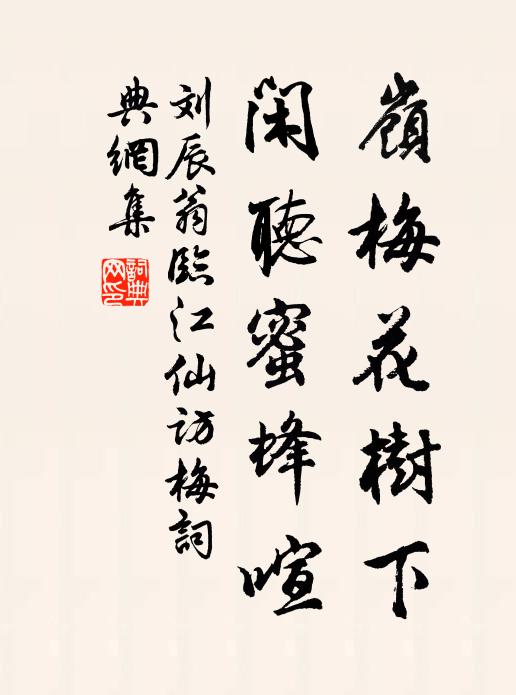 嶺梅花樹下
閑聽蜜蜂喧
刘辰翁臨江仙访梅詞
典網集
詞典網印